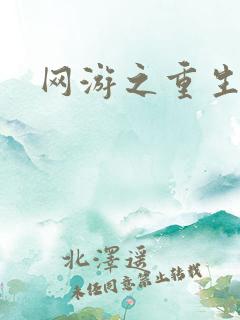 网游之重生
北澤遥
未经同意禁止转载